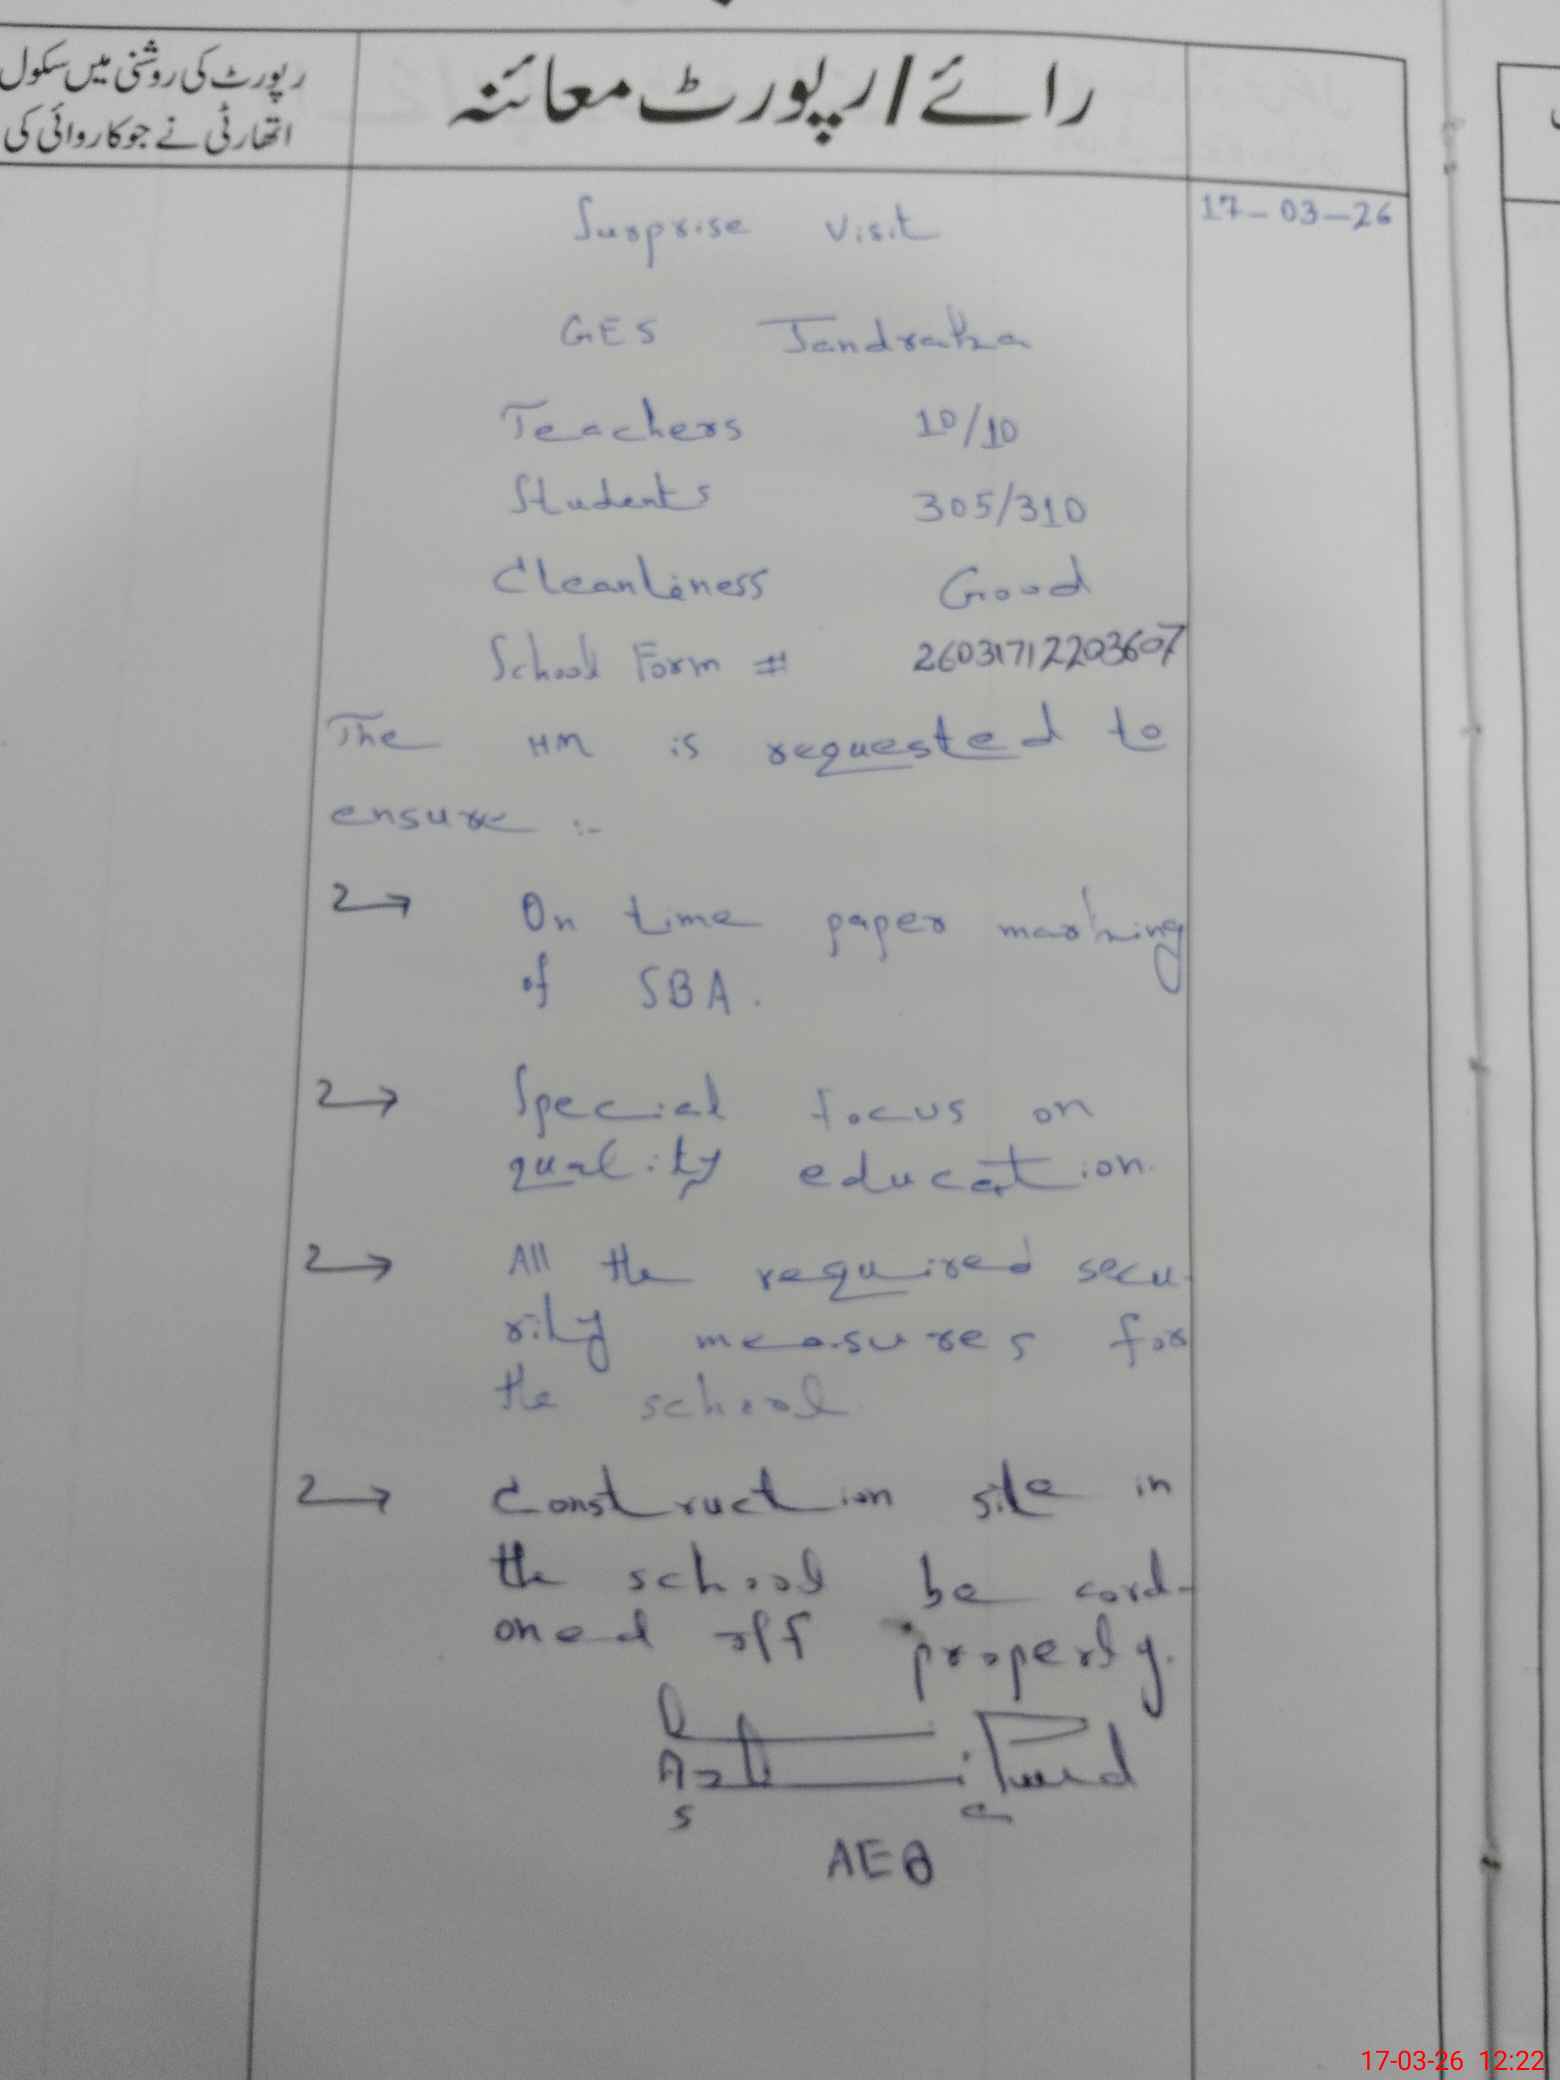 رپورٹ کی روشنی میں سکول
اتھارٹی نے جو کاروائی کی
رائے/رپورٹ معائنہ
17-03-26
Surprise Visit
GES Jandraka
Teachers 10/10
Students 305/310
Cleanliness Good
School Form # 26031712203607
The HM is requested to
ensure :-
On time paper marking
of SBA.
Special focus on
quality education.
All the required secu-
rity measures for
the school
Construction site in
the school be cord-
oned off properly.
AEO
17-03-26 12:22